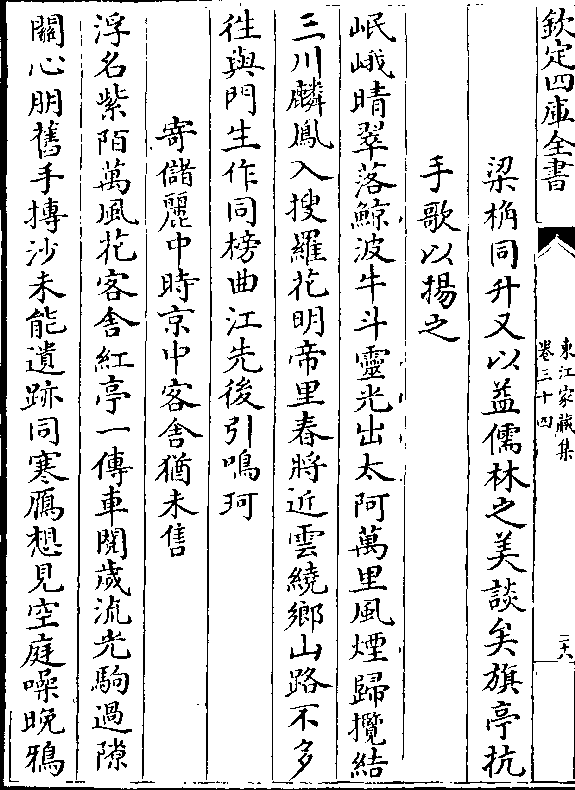 欽定四庫全書
東江家藏集
卷三十四
二十八
梁桷同升又以益儒林之美談矣旗亭抗
手歌以揚之
岷峨晴翠落鯨波牛斗靈光出太阿萬里風煙歸攬結
三川麟鳳入搜羅花明帝里春將近雲繞鄉山路不多
徃與門生作同榜曲江先後引鳴珂
寄儲麗中時京中客舍猶未售
浮名紫陌萬風花客舍紅亭一傳車閱歲流光駒過隙
關心朋舊手摶沙未能遺跡同寒鴈想見空庭噪晚鴉